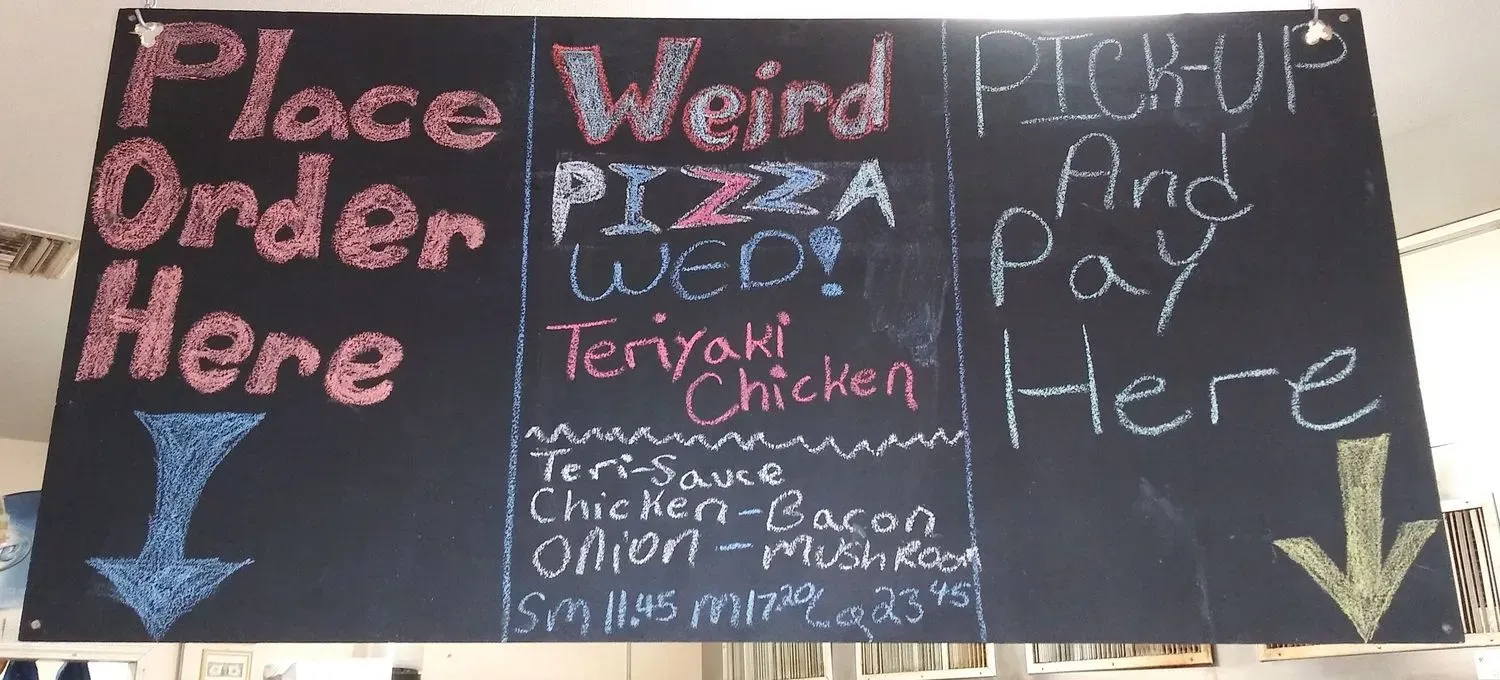 Place
Order
Here
Weird
PIZZA
WED!
Teriyaki
Chicken
Teri-Sauce
Chicken-Bacon
Onion - Mushroom
Sm 11.45 M 17.20 Lg 23.45
PICK-UP
And
Pay
Here